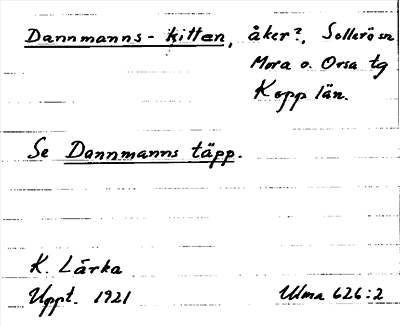 Dannmanns-kitten, åker?, Sollerö sn
Mora o. Orsa tg
Kopp län.
Se Dannmanns täpp.
K. Lärka
Uppt. 1921 Ulma 626:2